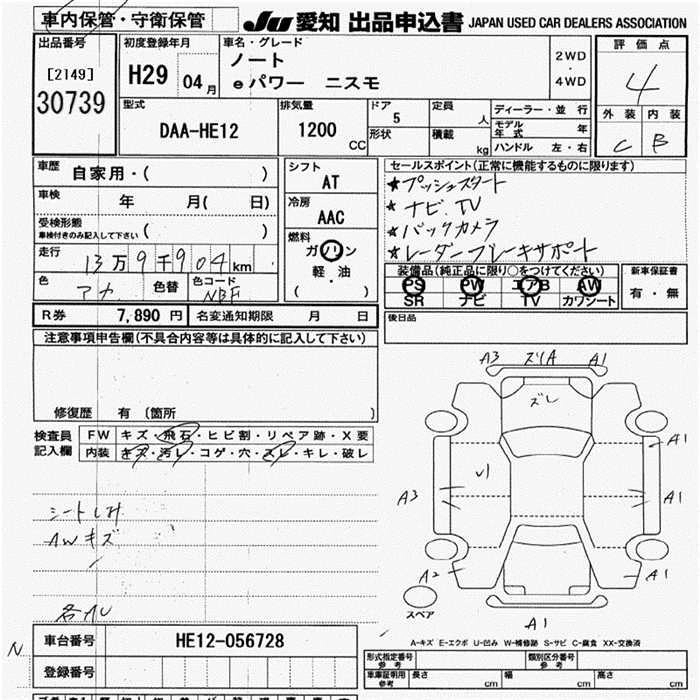 車内保管・守衛保管
JU 愛知 出品申込書 JAPAN USED CAR DEALERS ASSOCIATION
出品番号
[2149]
30739
初度登録年月
H29 04 月
車名・グレード
ノート
eパワー ニスモ
2WD
・
4WD
評価点
4
外装 内装
C B
型式
DAA-HE12
排気量
1200
CC
ドア
5
形状
定員
人
積載
kg
ディーラー・並行
モデル年式 年
ハンドル 左・右
車歴
自家用・( )
車検
年 月( 日)
受検形態
車検付きのみ記入して下さい ( )
走行
13万9千904km
色
アカ
色替
色コード
NBF
シフト
AT
冷房
AAC
燃料
ガソリン
軽・油
( )
セールスポイント(正常に機能するものに限ります)
★プッシュスタート
★ナビ.TV
★バックカメラ
★レーダーブレーキサポート
装備品(純正品に限り○をつけてください)
PS PW エアB AW
SR ナビ TV カワシート
新車保証書
有・無
R券 7,890 円 名変通知期限 月 日
後日品
注意事項申告欄(不具合内容等は具体的に記入して下さい)
修復歴 有 〔箇所 〕
検査員
記入欄
FW キズ・飛石・ヒビ割・リペア跡・X要
内装 キズ・汚レ・コゲ・穴・スレ・キレ・破レ
シートしみ
AWキズ
各AU
A3 ズリA A1
ズレ
A1
A3
A2
A1
A1
スペア
A-キズ E-エクボ U-凹み W-補修跡 S-サビ C-腐食 XX-交換済
N
車台番号 HE12-056728
登録番号
形式指定番号
参考
類別区分番号
参考
車庫証明用
参考
長さ cm 幅 cm 高さ cm